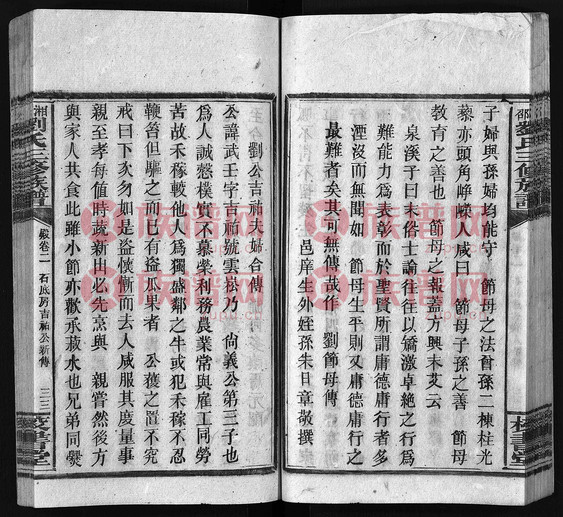 子婦與孫婦均能守 節母之法曾孫二棟柱光
藜亦頭角崢嶸人咸曰 節母子孫之善 節母
教育之善也 節母之報蓋方興未艾云
泉溪子曰末俗士論往往以矯激卓絶之行爲
難能力爲表彰而於聖賢所謂庸德庸行者多
湮沒而無聞如 節母生平則又庸德庸行之
最難者矣其可無傳哉作 劉節母傳
邑庠生外姪孫朱日章敬撰
劉公吉祐夫婦合傳
公諱武壬字吉祐號雲崧乃 尙義公第三子也
爲人誠慤樸實不慕榮利務農業常與雇工同勞
苦故禾稼較他人爲獨盛鄰之牛或犯禾稼不忍
鞭笞但驅之而已有盜瓜果者 公獲之置不究
戒曰下次勿如是盜愧慚而去人咸服其度量更
親至孝每值時蔬新出必先烹與 親嘗然後方
與家人共食此雖小節亦歡承菽水也兄弟同爨
湘劉氏三修族譜
卷二 石底房吉祐公新傳
二三
校書堂
邵劉氏三修族譜
校書堂
族谱网